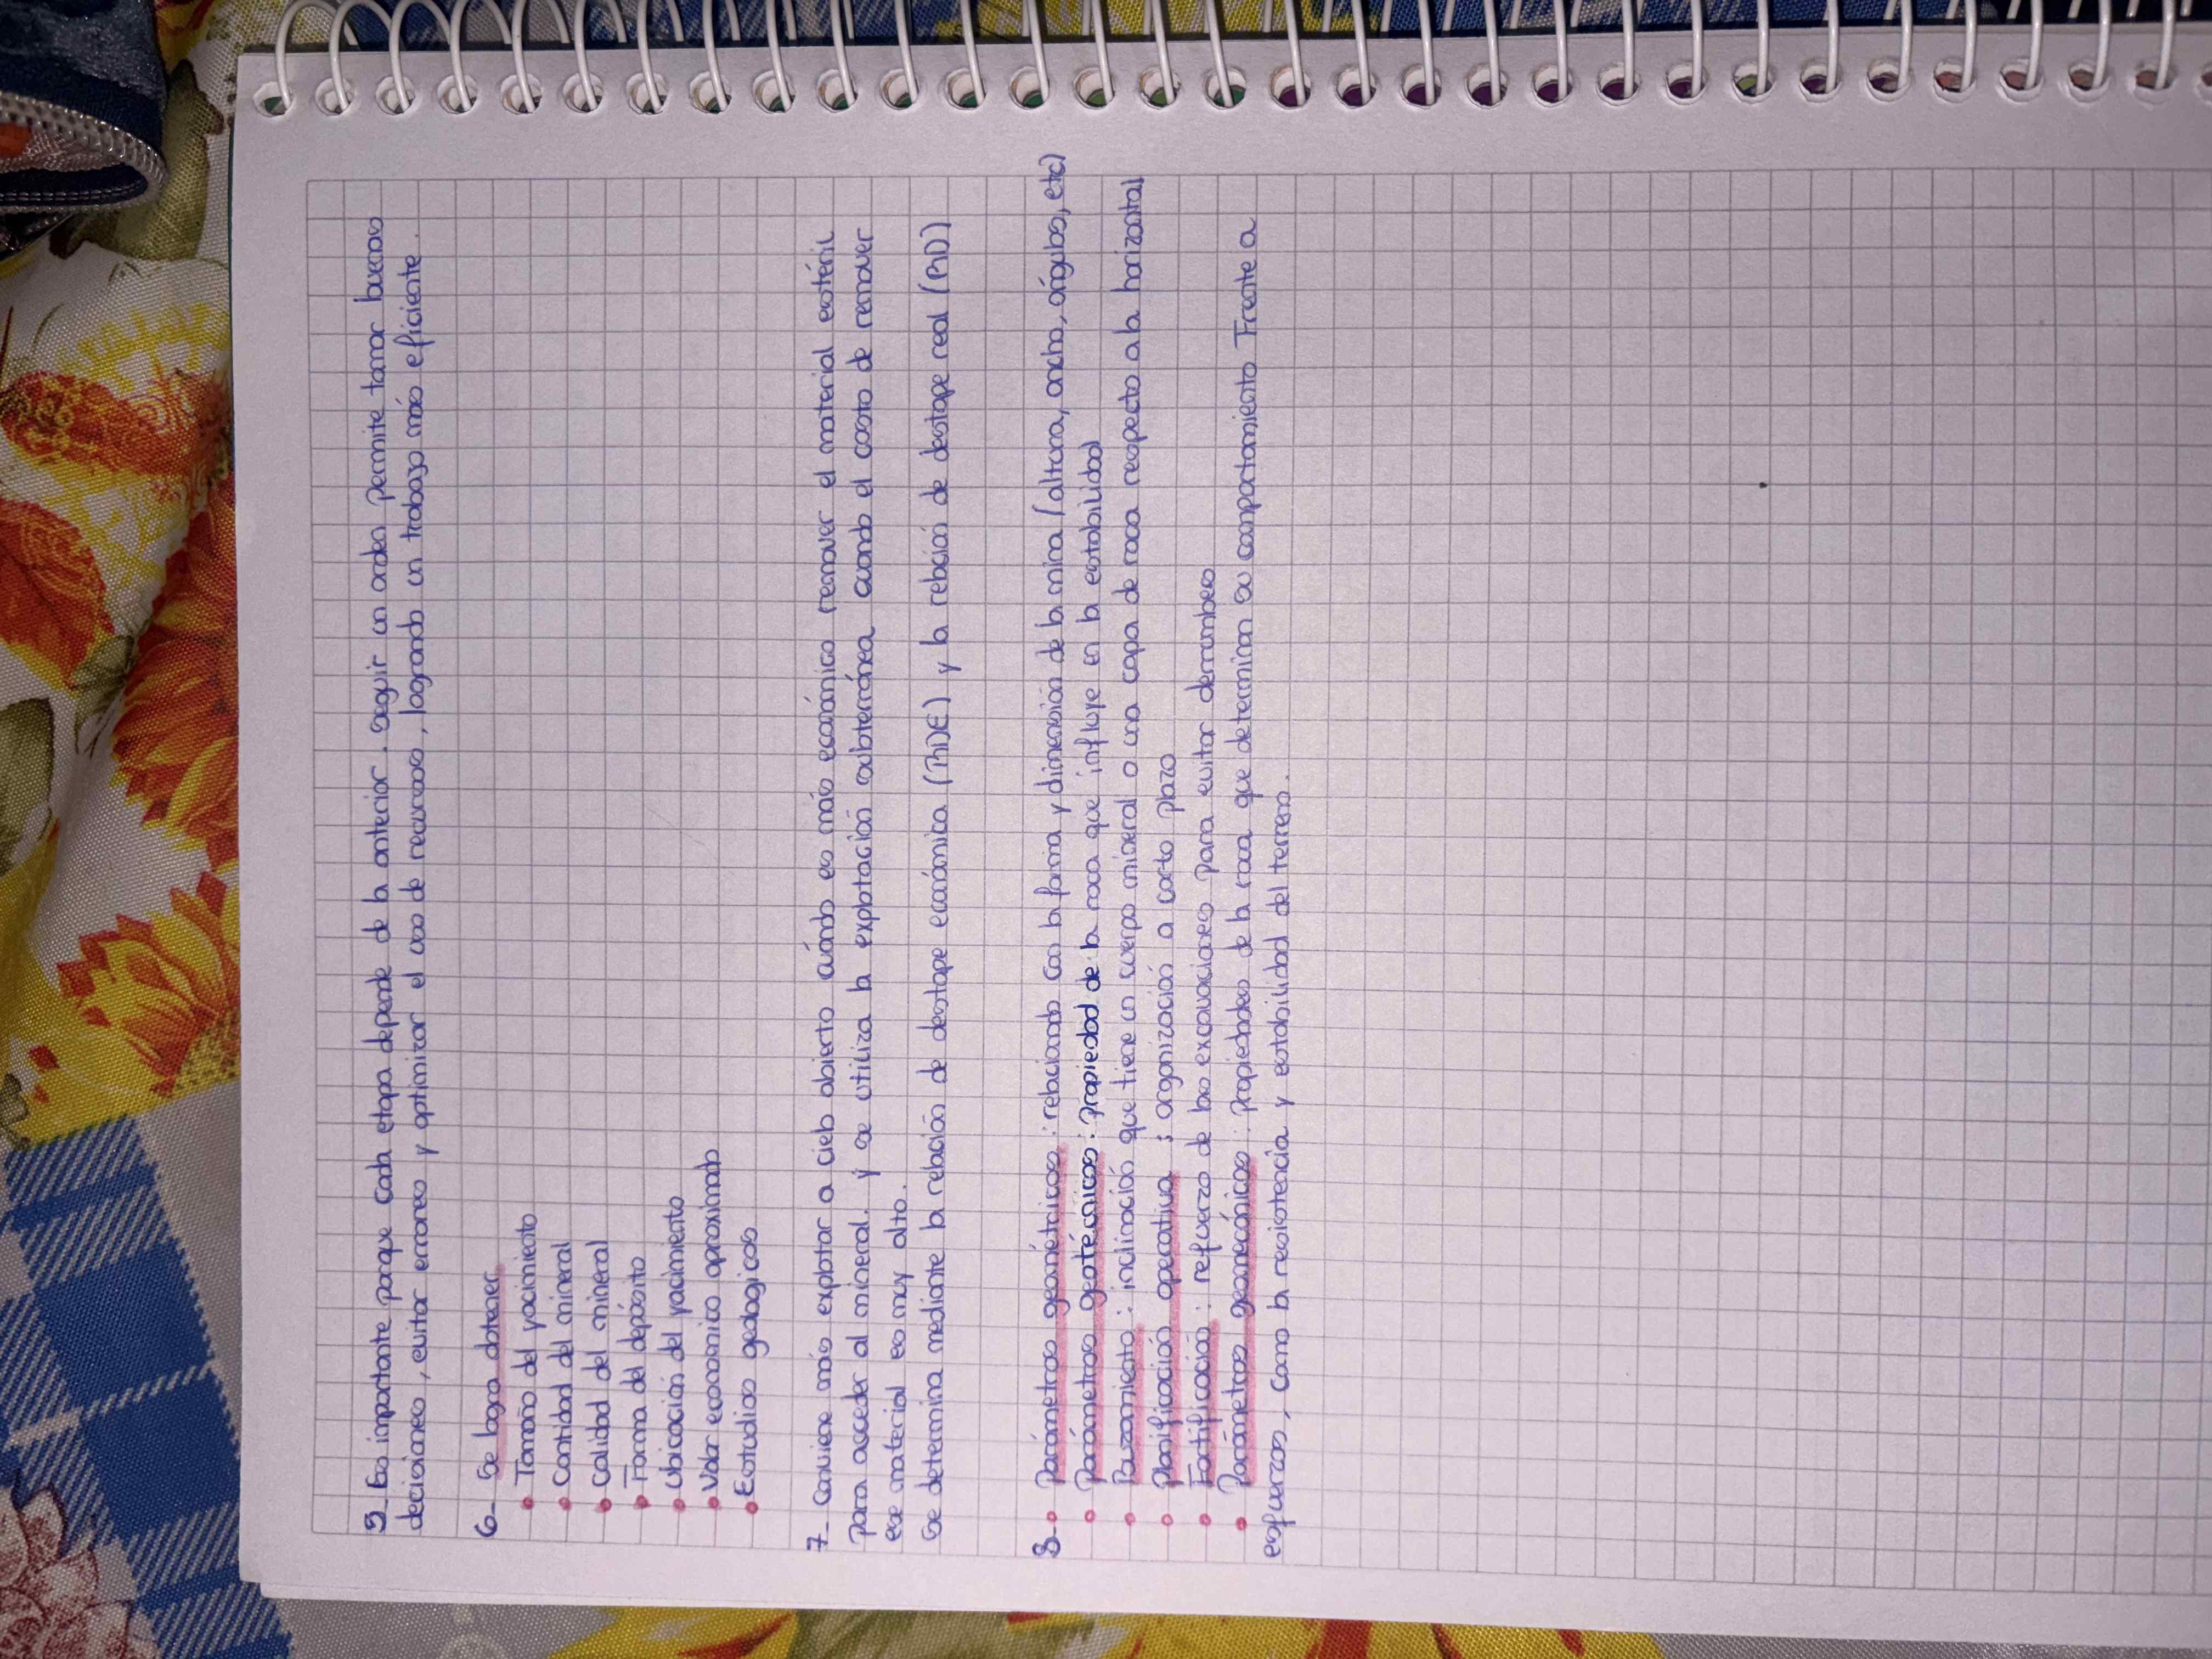 5- Es importante porque cada etapa depende de la anterior. seguir un orden permite tomar buenas
decisiones, evitar errores y optimizar el uso de recursos, logrando un trabajo más eficiente.
6- Se logra obtener
• Tamaño del yacimiento
• Cantidad del mineral
• Calidad del mineral
• Forma del depósito
• Ubicación del yacimiento
• Valor economico aproximado
• Estudios geologicos
7- Conviene más explotar a cielo abierto cuándo es más económico remover el material estéril
para acceder al mineral. y se utiliza la explotación subterránea cuando el costo de remover
ese material es muy alto.
Se determina mediante la relación de destape económica (RDE) y la relación de destape real (RD)
8- • Parámetros geométricos: relacionado con la forma y dimensión de la mina (altura, ancho, ángulos, etc)
• Parámetros geotécnicos: propiedad de la roca que influye en la estabilidad
• Buzamiento: inclinación que tiene un cuerpo mineral o una capa de roca respecto a la horizontal
• Planificación operativa: organización a corto plazo
• Fortificación: refuerzo de las excavaciones para evitar derrumbes
• Parámetros geomecánicos: Propiedades de la roca que determinan su comportamiento Frente a
esfuerzos, como la resistencia y estabilidad del terreno.